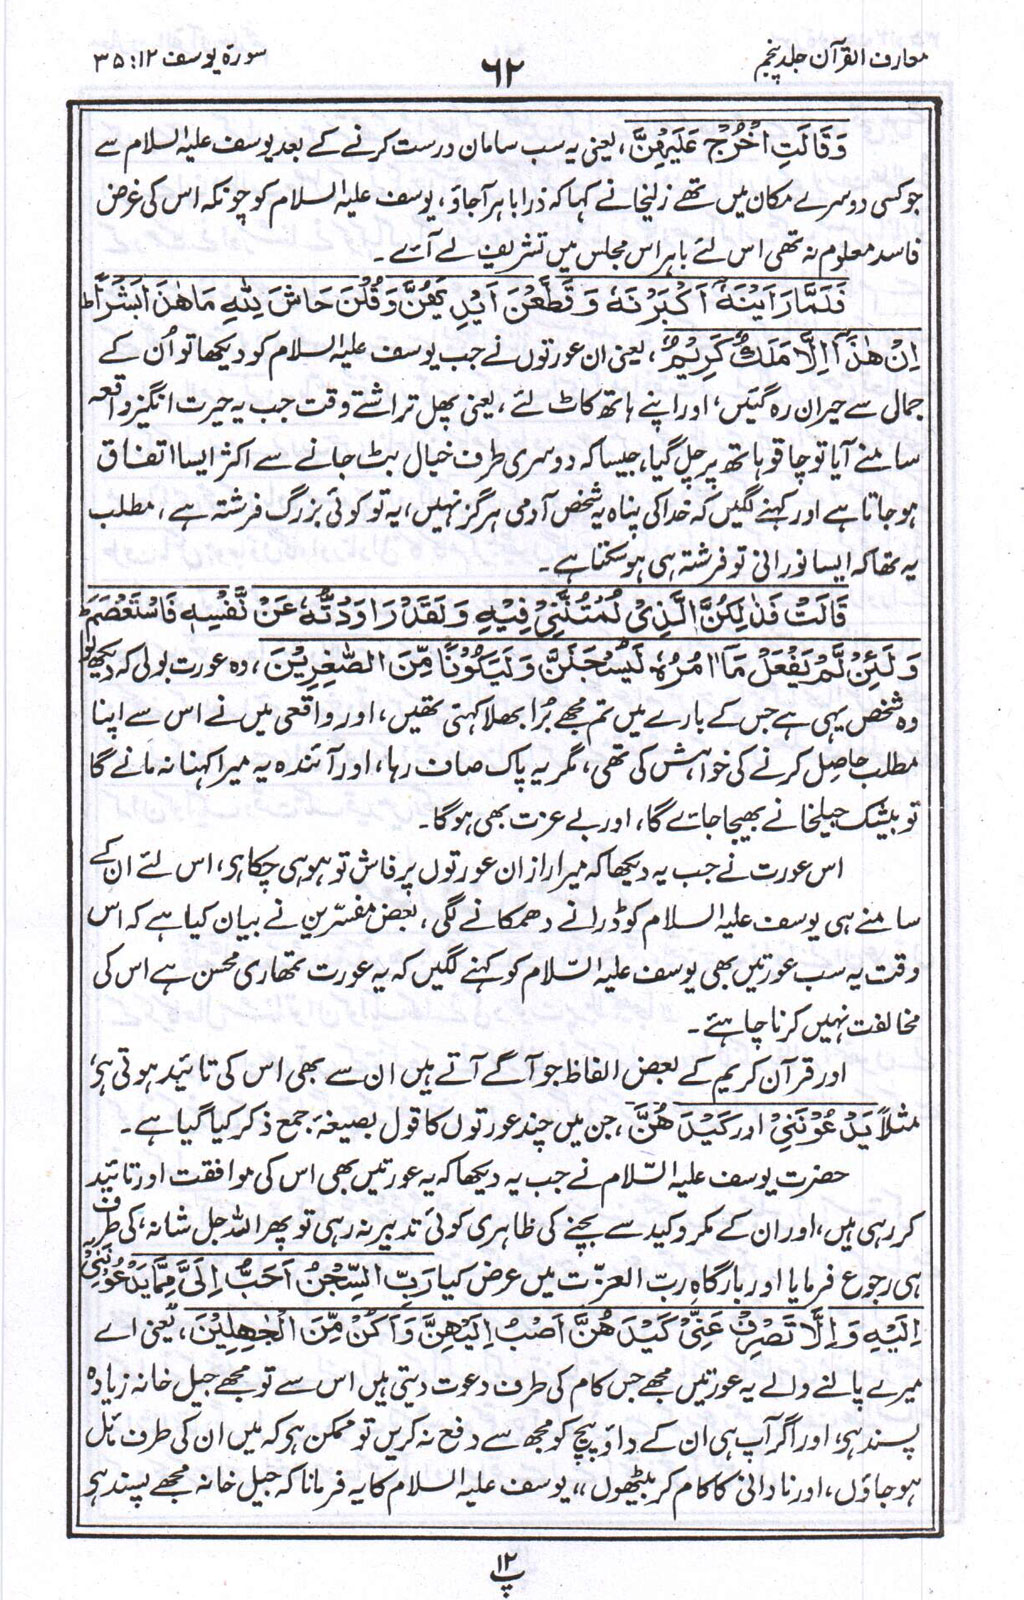 معارف القرآن جلد پنجم
۶۲
سورۃ یوسف ۱۲ : ۳۵
وَقَالَتِ اخْرُجْ عَلَیْهِنَّ، یعنی یہ سب سامان درست کرنے کے بعد یوسف علیہ السلام سے
جو کسی دوسرے مکان میں تھے زلیخا نے کہا کہ ذرا باہر آجاؤ، یوسف علیہ السلام کو چونکہ اس کی غرض
فاسد معلوم نہ تھی اس لئے باہر اس مجلس میں تشریف لے آئے۔
فَلَمَّا رَاَیْنَهٗۤ اَکْبَرْنَهٗ وَقَطَّعْنَ اَیْدِیَهُنَّ وَقُلْنَ حَاشَ لِلّٰهِ مَا هٰذَا بَشَرًا ط
اِنْ هٰذَاۤ اِلَّا مَلَكٌ كَرِیْمٌ، یعنی ان عورتوں نے جب یوسف علیہ السلام کو دیکھا تو اُن کے
جمال سے حیران رہ گئیں، اور اپنے ہاتھ کاٹ لئے، یعنی پھل تراشتے وقت جب یہ حیرت انگیز واقعہ
سامنے آیا تو چاقو ہاتھ پر چل گیا، جیسا کہ دوسری طرف خیال بٹ جانے سے اکثر ایسا اتفاق
ہو جاتا ہے اور کہنے لگیں کہ خدا کی پناہ یہ شخص آدمی ہرگز نہیں، یہ تو کوئی بزرگ فرشتہ ہے، مطلب
یہ تھا کہ ایسا نورانی تو فرشتہ ہی ہو سکتا ہے۔
قَالَتْ فَذٰلِكُنَّ الَّذِیْ لُمْتُنَّنِیْ فِیْهِ وَلَقَدْ رَاوَدْتُّهٗ عَنْ نَّفْسِهٖ فَاسْتَعْصَمَ ط
وَلَئِنْ لَّمْ یَفْعَلْ مَاۤ اٰمُرُهٗ لَیُسْجَنَنَّ وَلَیَكُوْنًا مِّنَ الصّٰغِرِیْنَ، وہ عورت بولی کہ دیکھ لو
وہ شخص یہی ہے جس کے بارے میں تم مجھے بُرا بھلا کہتی تھیں، اور واقعی میں نے اس سے اپنا
مطلب حاصل کرنے کی خواہش کی تھی، مگر یہ پاک صاف رہا، اور آئندہ یہ میرا کہنا نہ مانے گا
تو بیشک جیلخانے بھیجا جائے گا، اور بے عزت بھی ہوگا۔
اس عورت نے جب یہ دیکھا کہ میرا راز ان عورتوں پر فاش تو ہو ہی چکا ہی، اس لئے ان کے
سامنے ہی یوسف علیہ السلام کو ڈرانے دھمکانے لگی، بعض مفسّرین نے بیان کیا ہے کہ اس
وقت یہ سب عورتیں بھی یوسف علیہ السّلام کو کہنے لگیں کہ یہ عورت تمھاری محسن ہے اس کی
مخالفت نہیں کرنا چاہئے۔
اور قرآن کریم کے بعض الفاظ جو آگے آتے ہیں ان سے بھی اس کی تائید ہوتی ہی،
مثلاً یَدْعُوْنَنِیْ اور كَیْدَهُنَّ، جن میں چند عورتوں کا قول بصیغۂ جمع ذکر کیا گیا ہے۔
حضرت یوسف علیہ السّلام نے جب یہ دیکھا کہ یہ عورتیں بھی اس کی موافقت اور تائید
کر رہی ہیں، اور ان کے مکر و کید سے بچنے کی ظاہری کوئی تدبیر نہ رہی تو پھر اللہ جل شانہٗ کی طرف
ہی رجوع فرمایا اور بارگاہِ ربّ العزّت میں عرض کیا رَبِّ السِّجْنُ اَحَبُّ اِلَیَّ مِمَّا یَدْعُوْنَنِیْۤ
اِلَیْهِ وَاِلَّا تَصْرِفْ عَنِّیْ كَیْدَهُنَّ اَصْبُ اِلَیْهِنَّ وَاَكُنْ مِّنَ الْجٰهِلِیْنَ، یعنی اے
میرے پالنے والے یہ عورتیں مجھے جس کام کی طرف دعوت دیتی ہیں اس سے تو مجھے جیل خانہ زیادہ
پسند ہی، اور اگر آپ ہی ان کے داؤ پیچ کو مجھ سے دفع نہ کریں تو ممکن ہی کہ میں ان کی طرف مائل
ہو جاؤں، اور نادانی کا کام کر بیٹھوں“ یوسف علیہ السلام کا یہ فرمانا کہ جیل خانہ مجھے پسند ہی
۱۲
پ